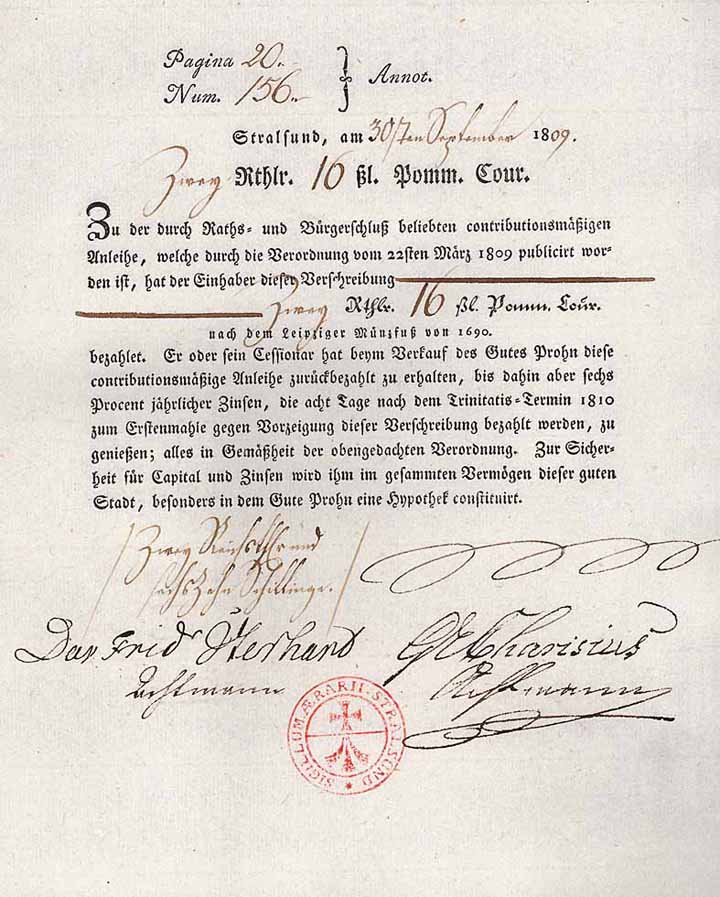 Pagina 20..
Num. 156..
} Annot.
Stralsund, am 30sten September 1809.
Zwey Rthlr. 16 ßl. Pomm. Cour.
Zu der durch Raths- und Bürgerschluß beliebten contributionsmäßigen
Anleihe, welche durch die Verordnung vom 22sten März 1809 publicirt wor-
den ist, hat der Einhaber dieser Verschreibung
Zwey Rthlr. 16 ßl. Pomm. Cour.
nach dem Leipziger Münzfuß von 1690.
bezahlet. Er oder sein Cessionar hat beym Verkauf des Gutes Prohn diese
contributionsmäßige Anleihe zurückbezahlt zu erhalten, bis dahin aber sechs
Procent jährlicher Zinsen, die acht Tage nach dem Trinitatis-Termin 1810
zum Erstenmahle gegen Vorzeigung dieser Verschreibung bezahlt werden, zu
genießen; alles in Gemäßheit der obengedachten Verordnung. Zur Sicher-
heit für Capital und Zinsen wird ihm im gesammten Vermögen dieser guten
Stadt, besonders in dem Gute Prohn eine Hypothek constituirt.
Zwey Reichsthlr und
sechszehn Schillinge.
Dav Frid Charisius
Achtmann Achtmann
SIGILLUM ÆRARII STRALSUND